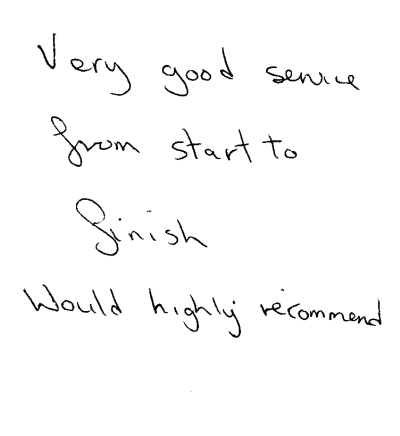 Very good service
from start to
finish
Would highly recommend